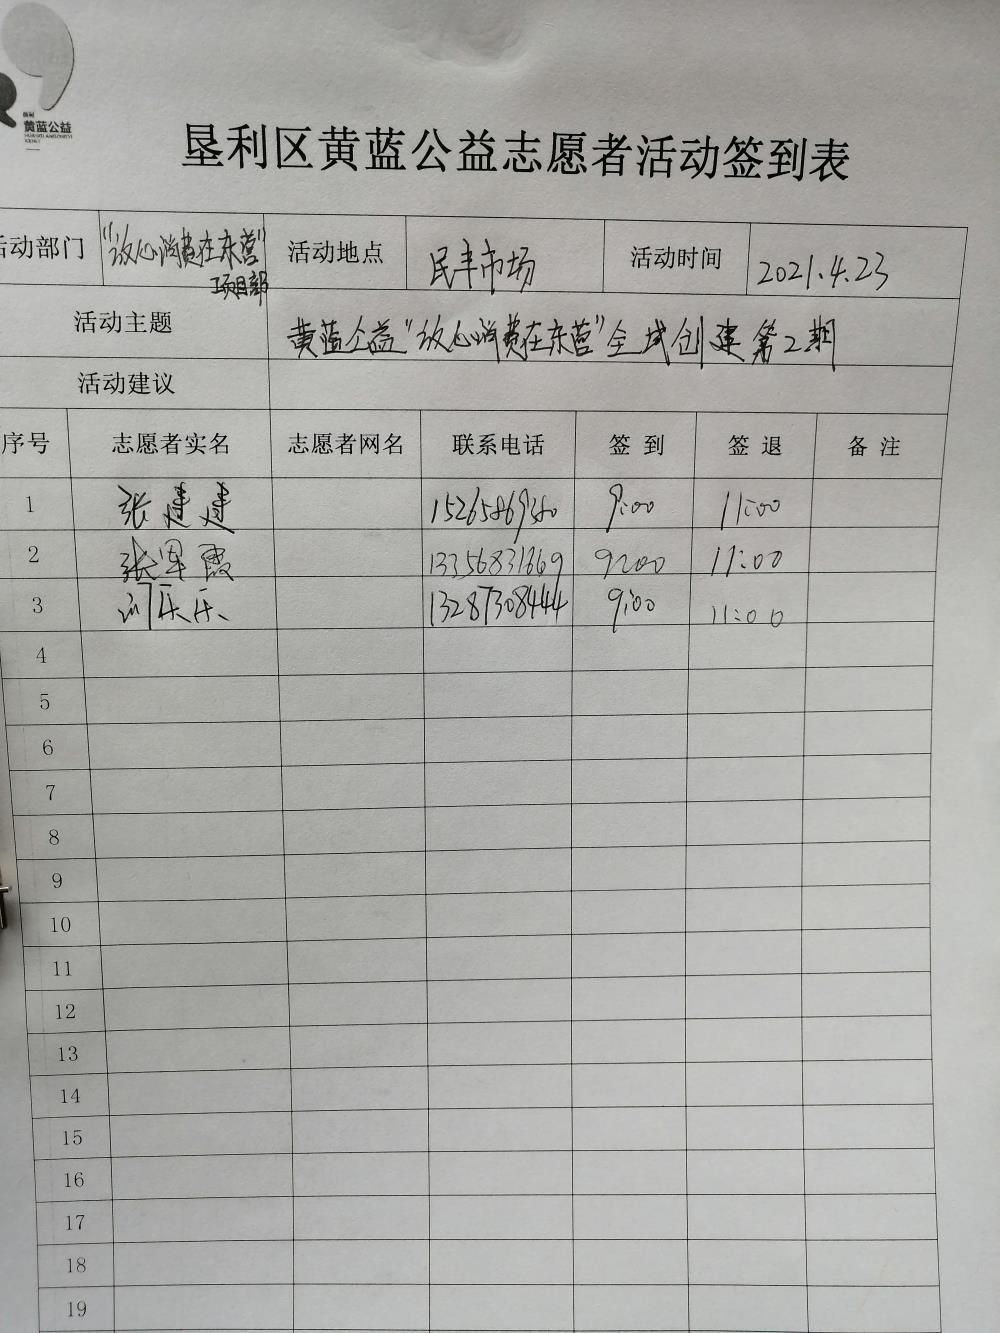 黄蓝公益
垦利区黄蓝公益志愿者活动签到表
活动部门 "放心消费在东营"项目部 活动地点 民丰市场 活动时间 2021.4.23
活动主题 黄蓝公益"放心消费在东营"全域创建第2期
活动建议
序号 志愿者实名 志愿者网名 联系电话 签到 签退 备注
1 张建建 15265869380 9:00 11:00
2 张军霞 13356831669 9:00 11:00
3 闫乐乐 13287308444 9:00 11:00
4
5
6
7
8
9
10
11
12
13
14
15
16
17
18
19